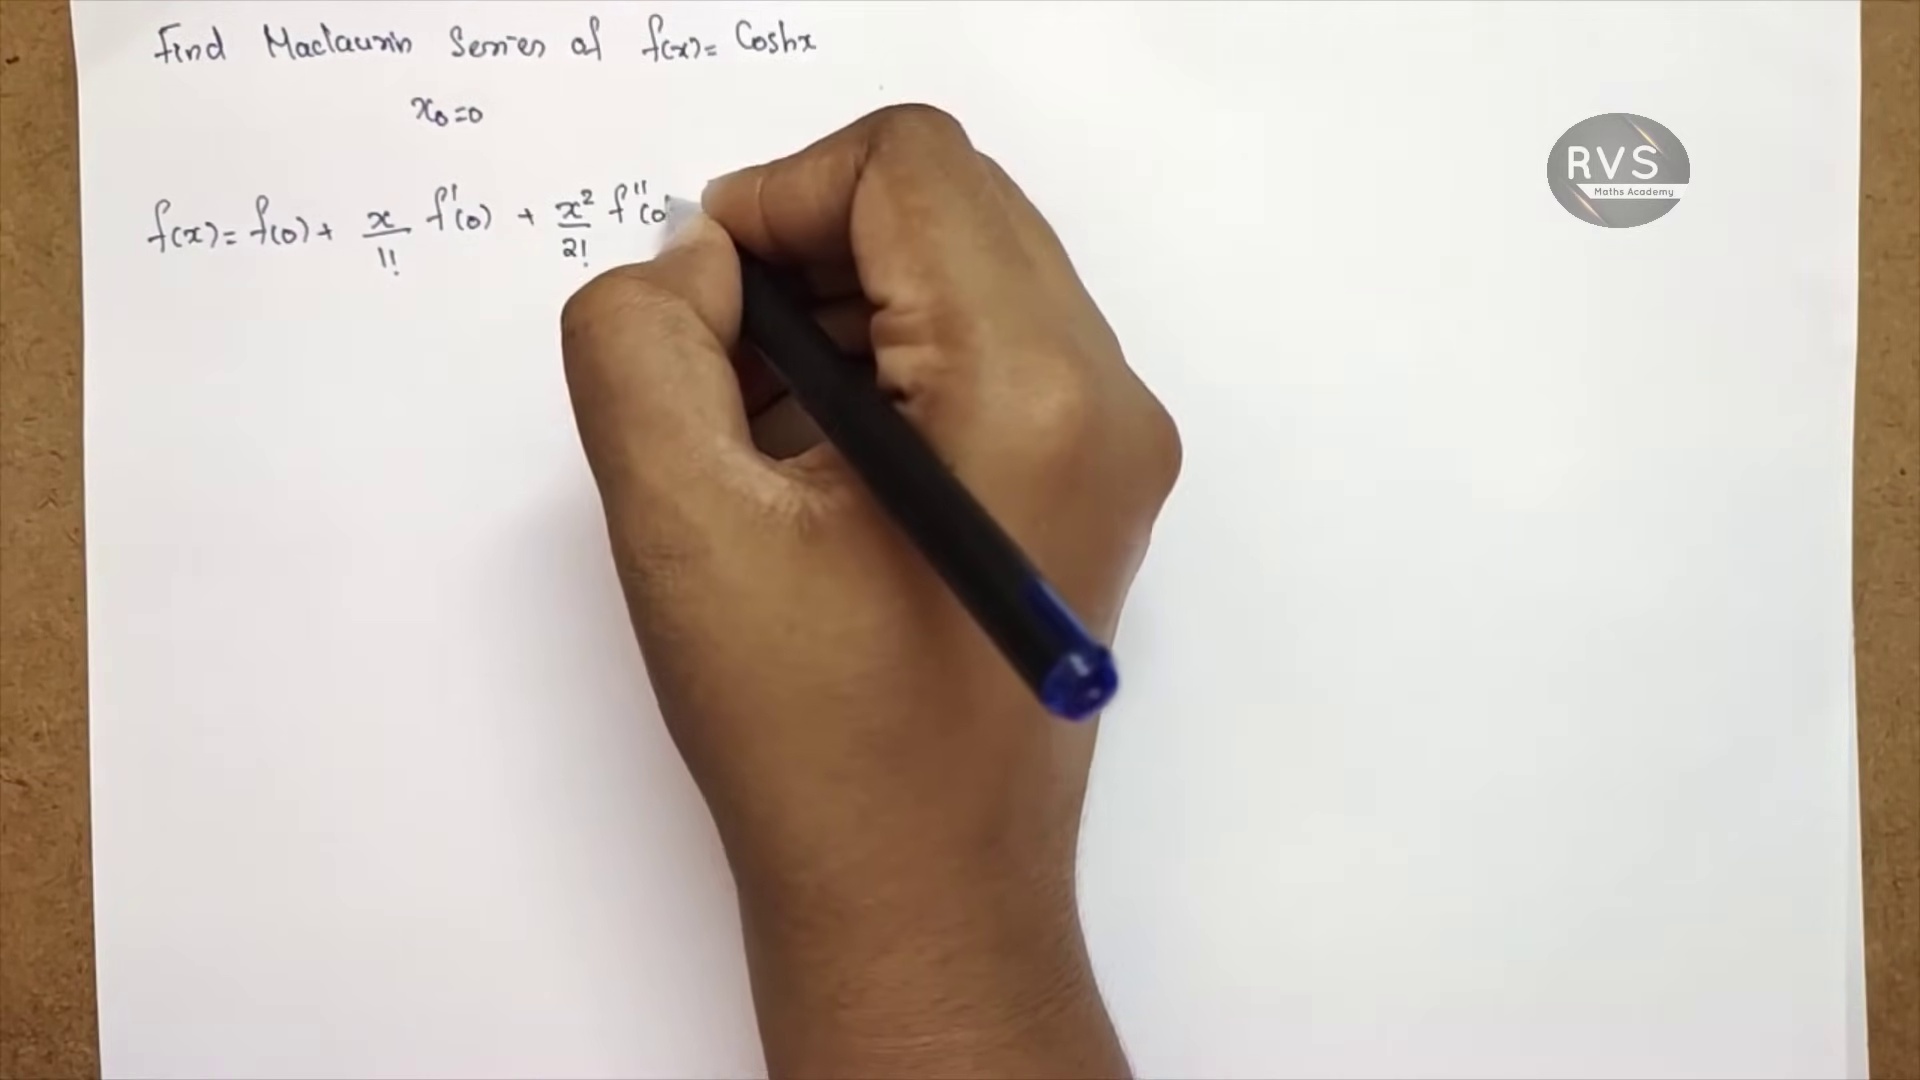 Find Maclaurin Series of f(x) = Coshx
x₀=0
f(x) = f(0) + x/1! f'(0) + x²/2! f''(0)
RVS
Maths Academy